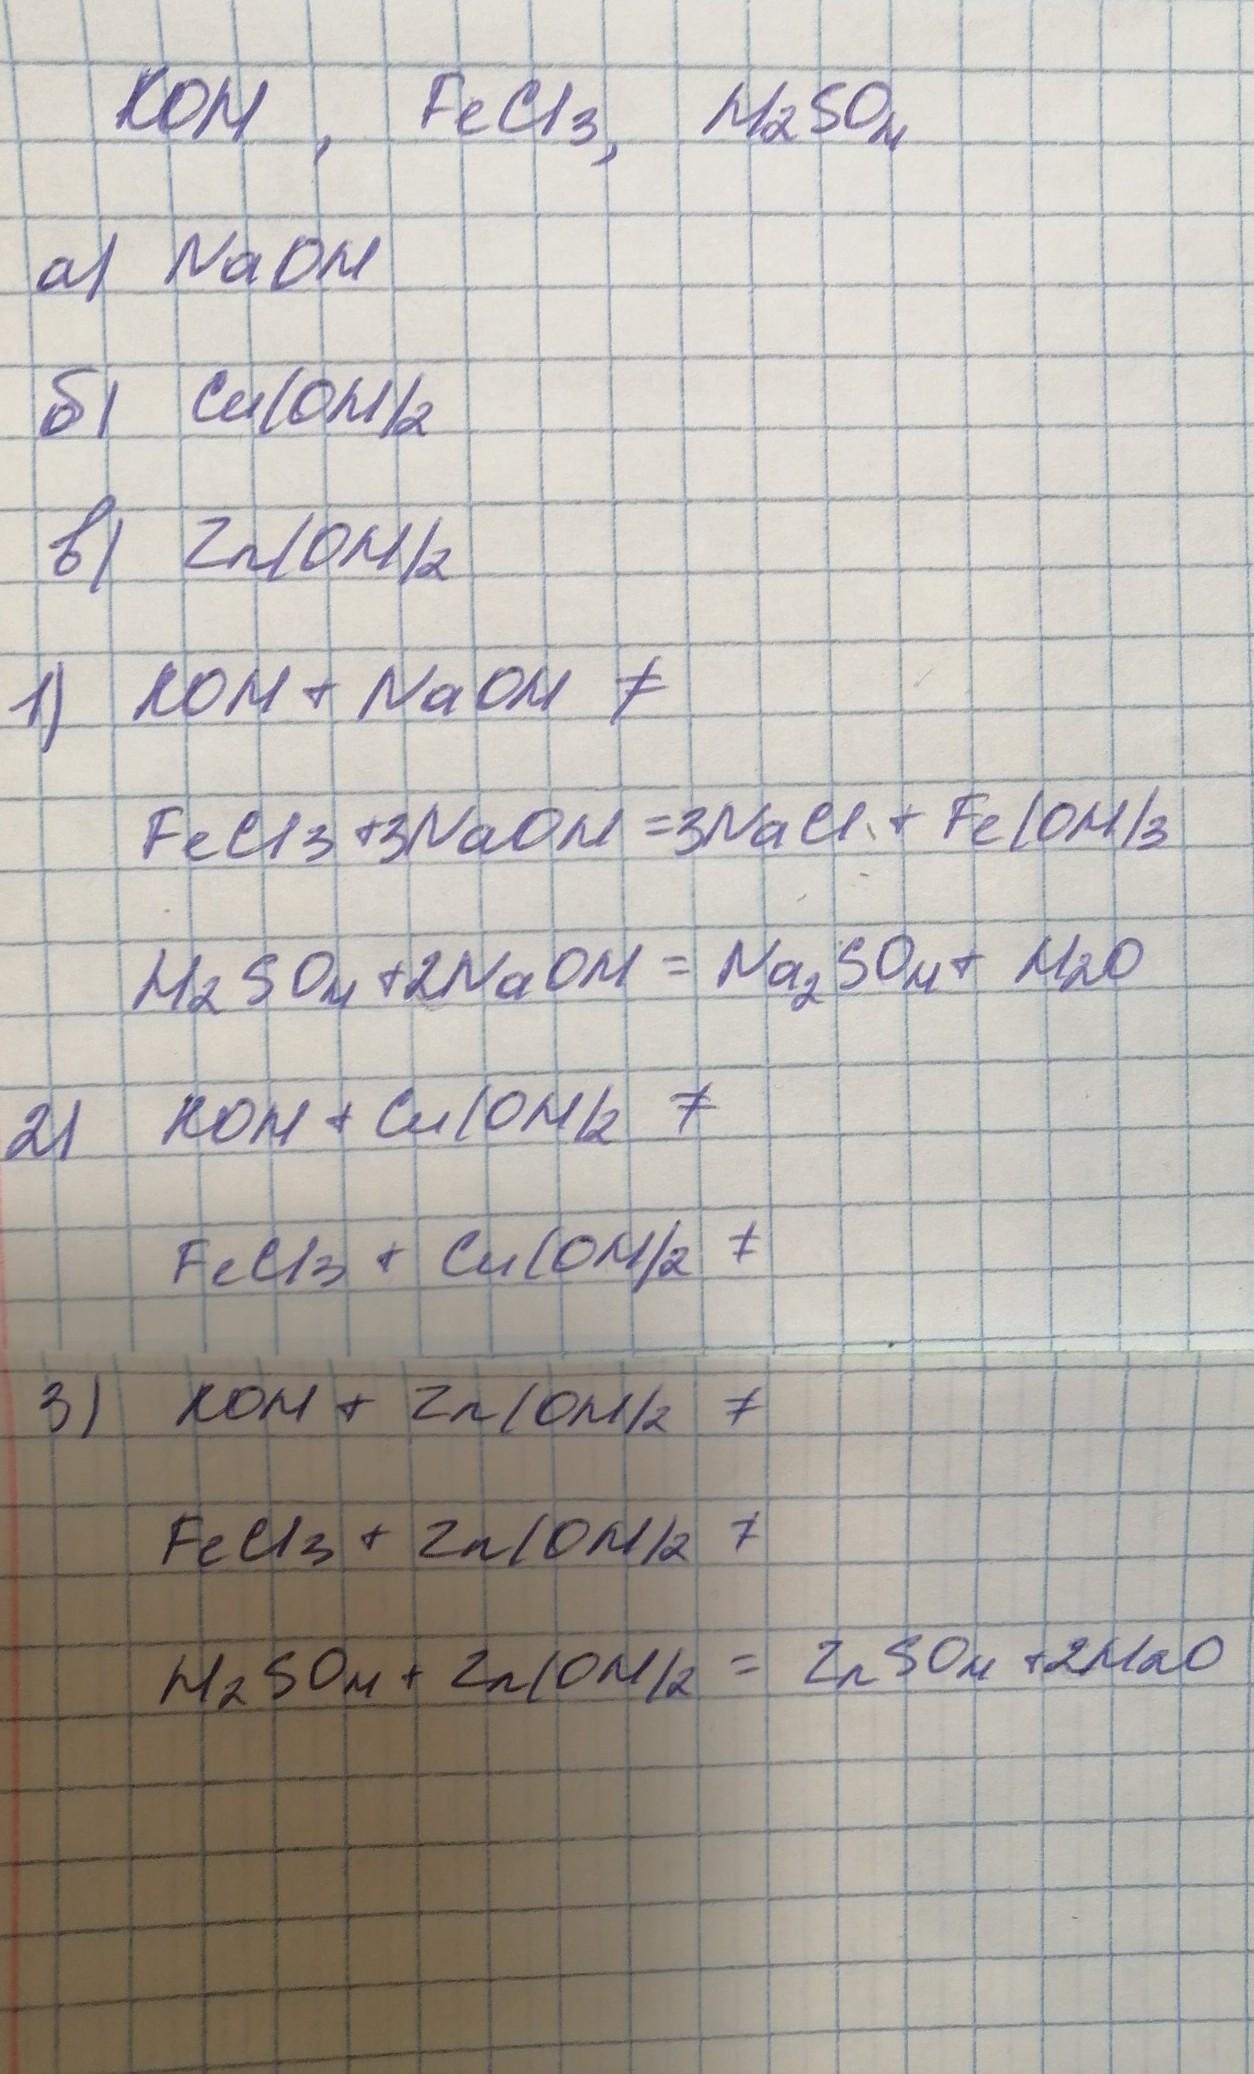 KOH, FeCl3, H2SO4
а) NaOH
б) Cu(OH)2
в) Zn(OH)2
1) KOH + NaOH ≠
FeCl3 + 3NaOH = 3NaCl + Fe(OH)3
H2SO4 + 2NaOH = Na2SO4 + H2O
2) KOH + Cu(OH)2 ≠
FeCl3 + Cu(OH)2 ≠
3) KOH + Zn(OH)2 ≠
FeCl3 + Zn(OH)2 ≠
H2SO4 + Zn(OH)2 = ZnSO4 + 2H2O